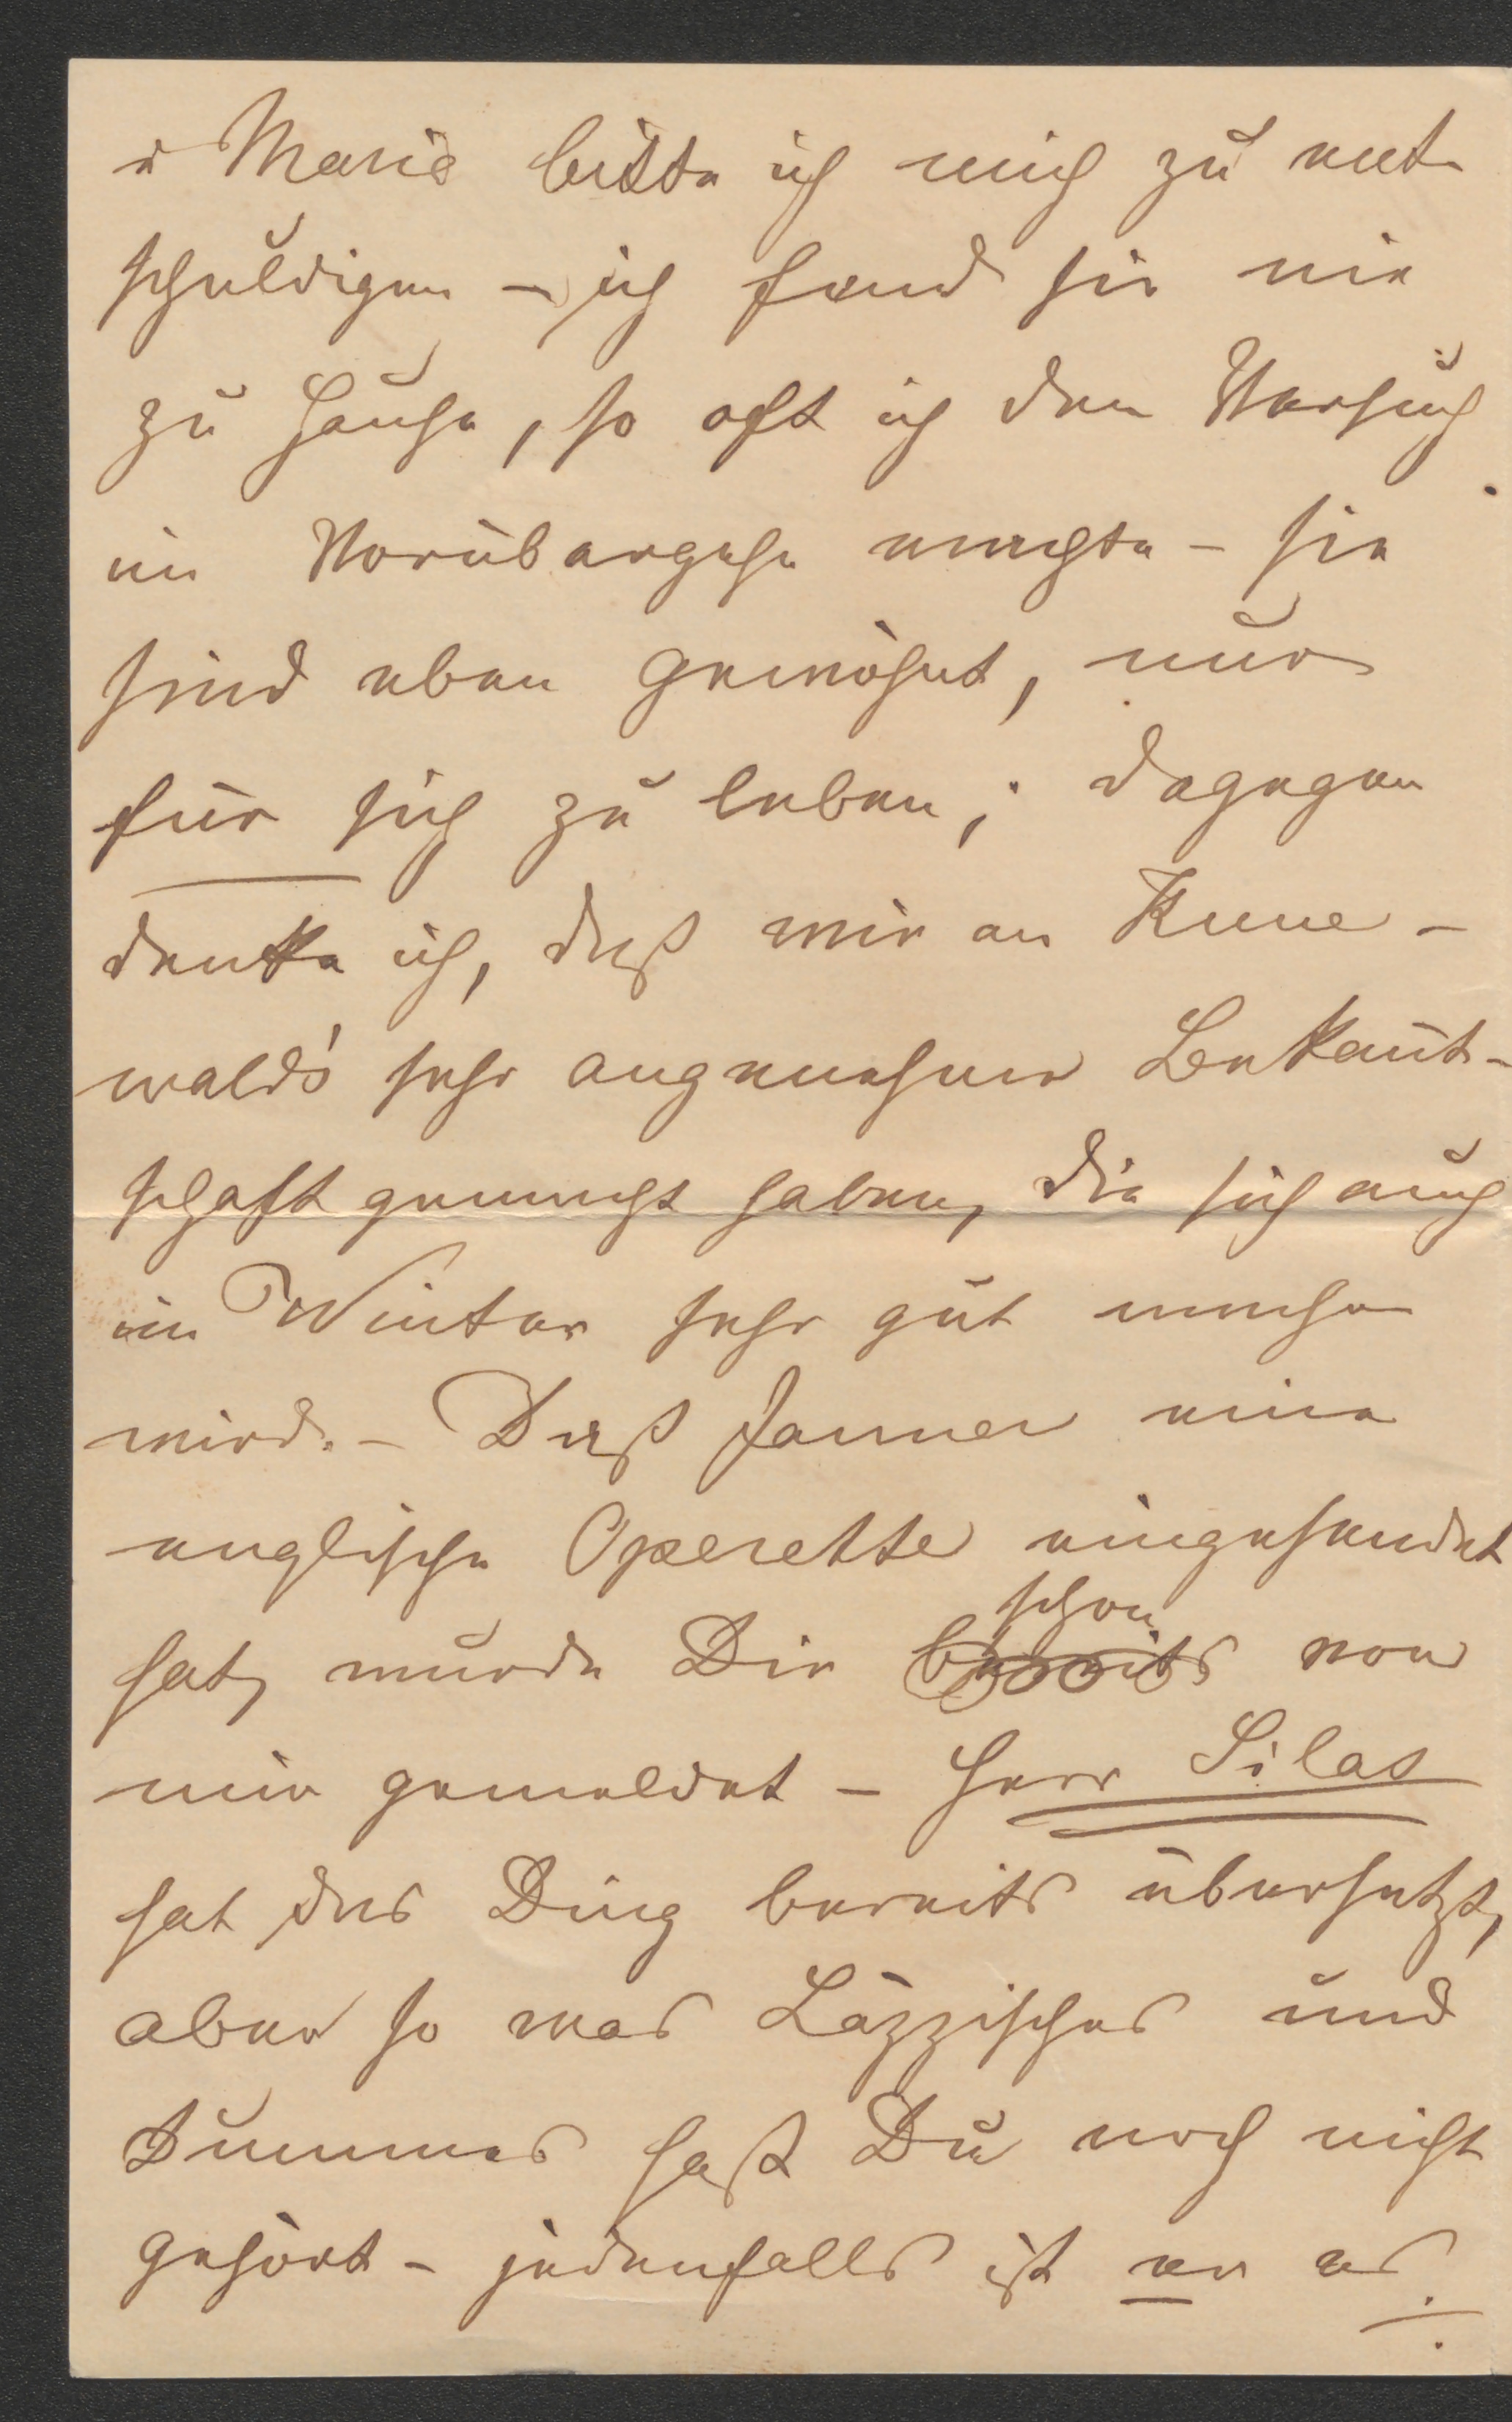 u Marie bitte ich mich zu ent-
schuldigen – ich fand sie nie
zu Hause, so oft ich den Versuch
im Vorübergehn machte – sie
sind eben gewöhnt, nur
für sich zu leben; dagegen
denke ich, daß wir an Kune-
wald's sehr angenehme Bekannt-
schaft gemacht haben, die sich auch
im Winter sehr gut machen
wird. – Daß Jauner eine
englische Operette eingesendet
hat, wurde Dir bereits schon von
mir gemeldet – Herr Silas
hat das Ding bereits übersetzt,
aber so was Läppisches und
Dummes hast Du noch nicht
gehört – jedenfalls ist er es